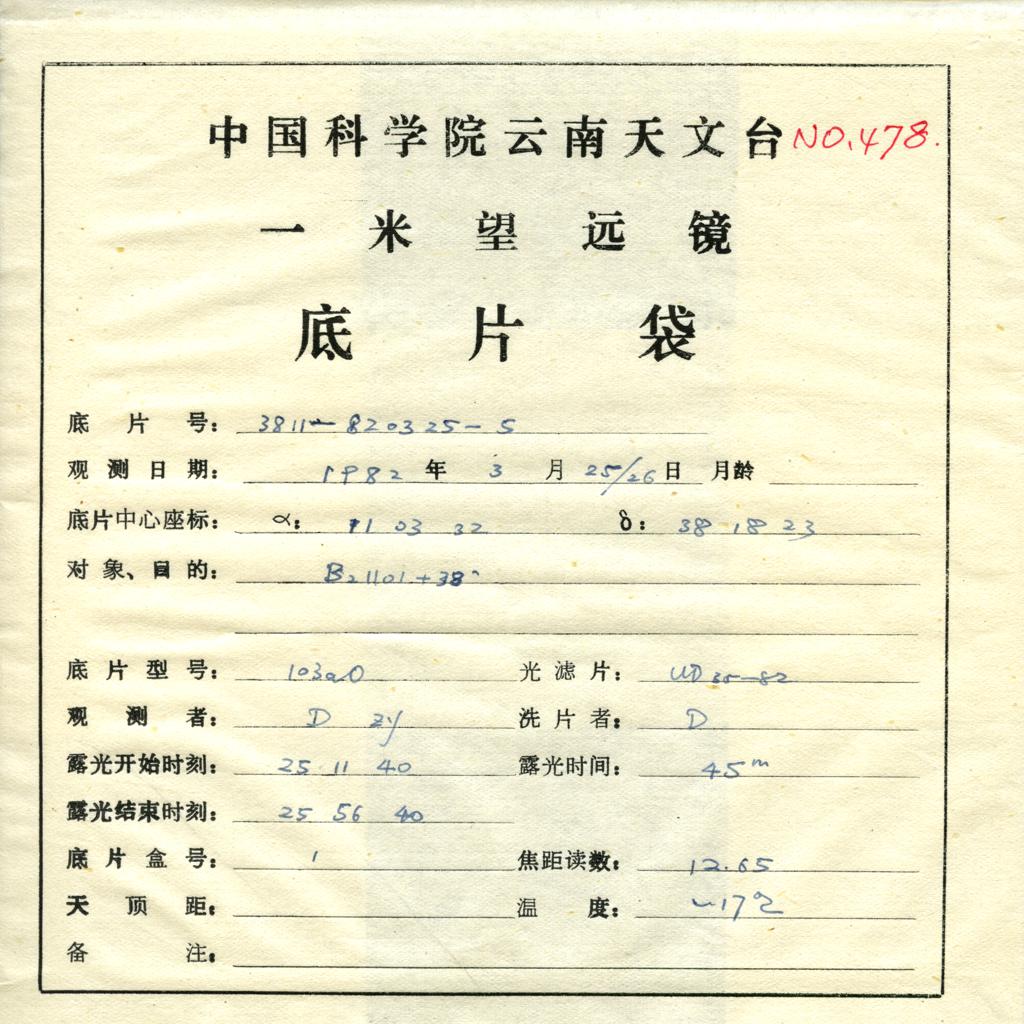 中国科学院云南天文台 NO.478.
一米望远镜
底片袋
底片号: 3811-820325-5
观测日期: 1982年3月25/26日 月龄
底片中心座标: α: 11 03 32 δ: 38 18 23
对象、目的: B21101+38
底片型号: 103aO 光滤片:
观测者: D zy 洗片者: D
露光开始时刻: 25 11 40 露光时间: 45m
露光结束时刻: 25 56 40
底片盒号: 1 焦距读数: 12.65
天顶距: 温度: 17℃
备注: